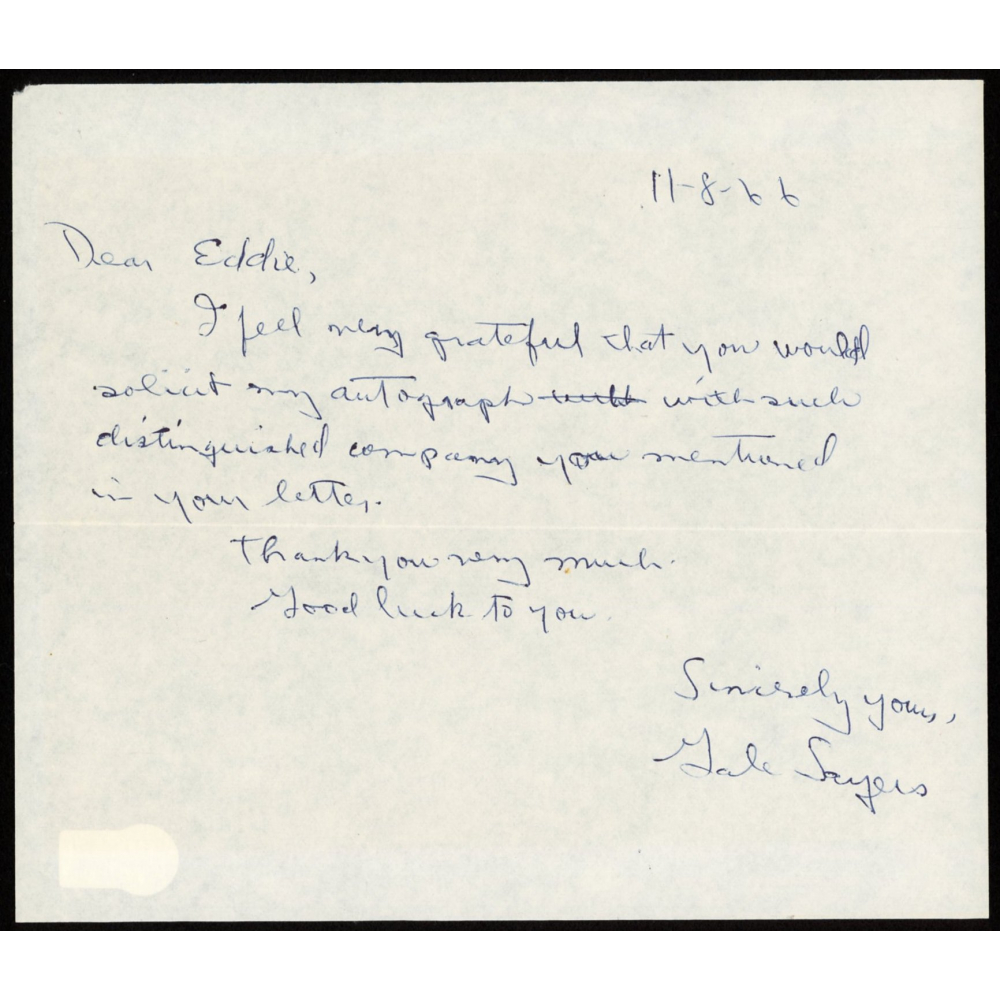 11-8-66
Dear Eddie,
I feel very grateful that you would
solicit my autograph with such
distinguished company you mentioned
in your letter.
Thank you very much.
Good luck to you.
Sincerely yours,
Gale Sayers